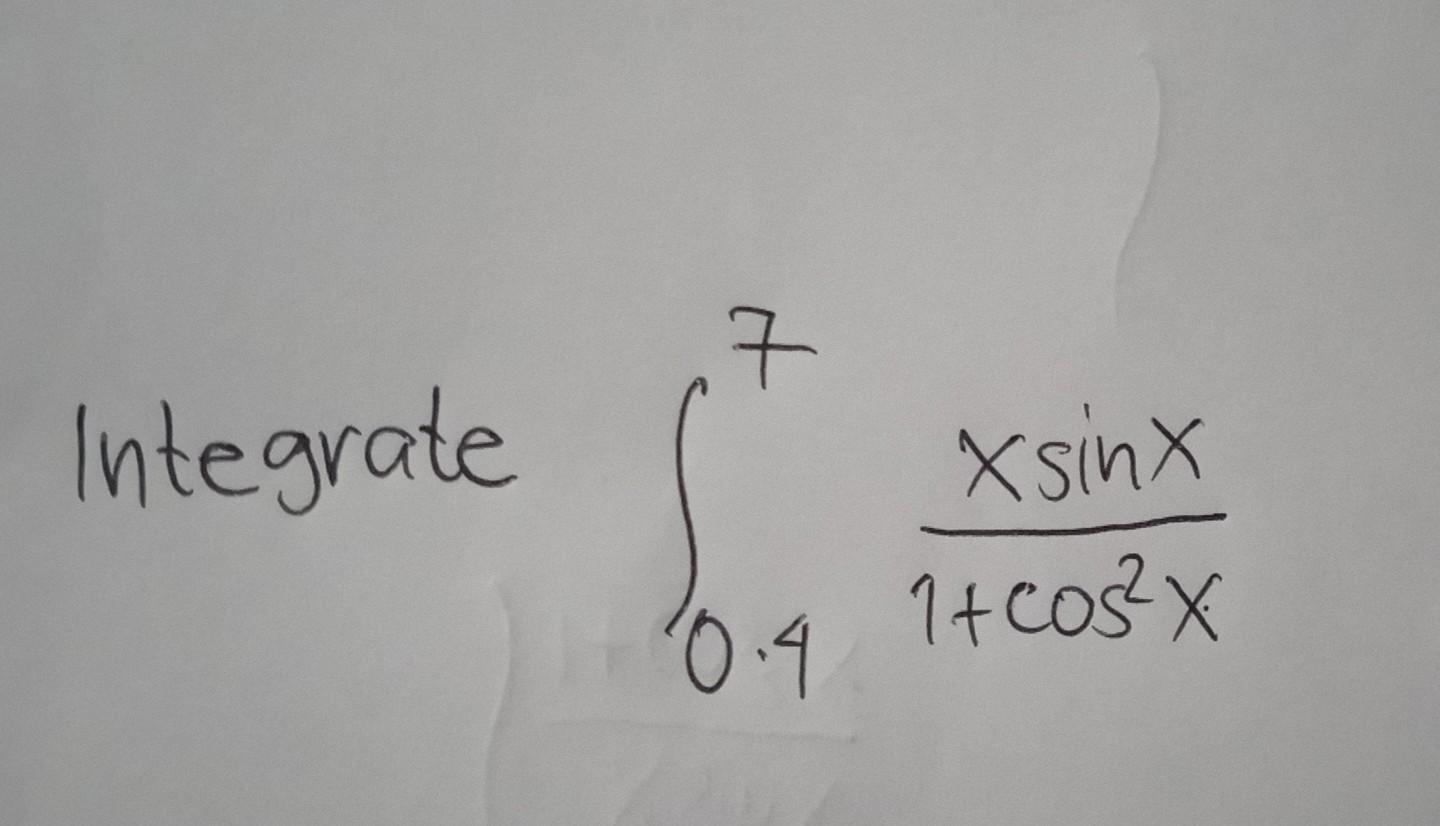 Integrate ∫_{0.4}^{7} \frac{x sin x}{1+cos²x}